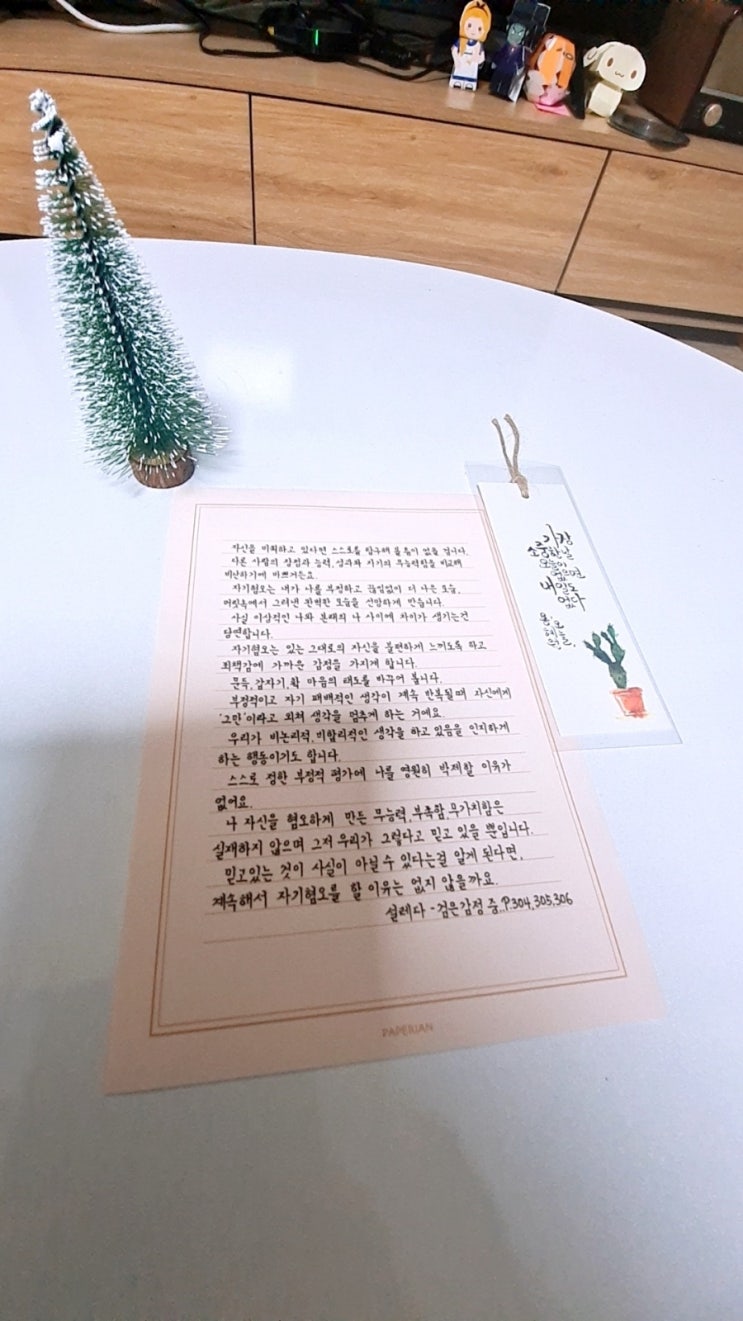 자신을 미워하고 있다면 스스로를 탐구해 볼 틈이 없을 겁니다.
다른 사람의 장점과 능력, 성과와 자기의 무능력함을 비교해
비난하기에 바쁘거든요.
자기혐오는 내가 나를 부정하고 끊임없이 더 나은 모습,
머릿속에서 그려낸 완벽한 모습을 선망하게 만듭니다.
사실 이상적인 나와 본래의 나 사이에 차이가 생기는건
당연합니다.
자기혐오는 있는 그대로의 자신을 불편하게 느끼도록 하고
죄책감에 가까운 감정을 가지게 합니다.
문득, 갑자기, 확 마음의 태도를 바꾸어 봅니다.
부정적이고 자기 패배적인 생각이 계속 반복될 때 자신에게
'그만'이라고 외쳐 생각을 멈추게 하는 거예요.
우리가 비논리적, 비합리적인 생각을 하고 있음을 인지하게
하는 행동이기도 합니다.
스스로 정한 부정적 평가에 나를 영원히 박제할 이유가
없어요.
나 자신을 혐오하게 만든 무능력, 부족함, 무가치함은
실재하지 않으며 그저 우리가 그렇다고 믿고 있을 뿐입니다.
믿고있는 것이 사실이 아닐 수 있다는걸 알게 된다면,
계속해서 자기혐오를 할 이유는 없지 않을까요.
설레다 - 검은감정 중. P.304, 305, 306
PAPERIAN
가장
소중한 날
오늘이
없으면
내일도
없다
오늘,